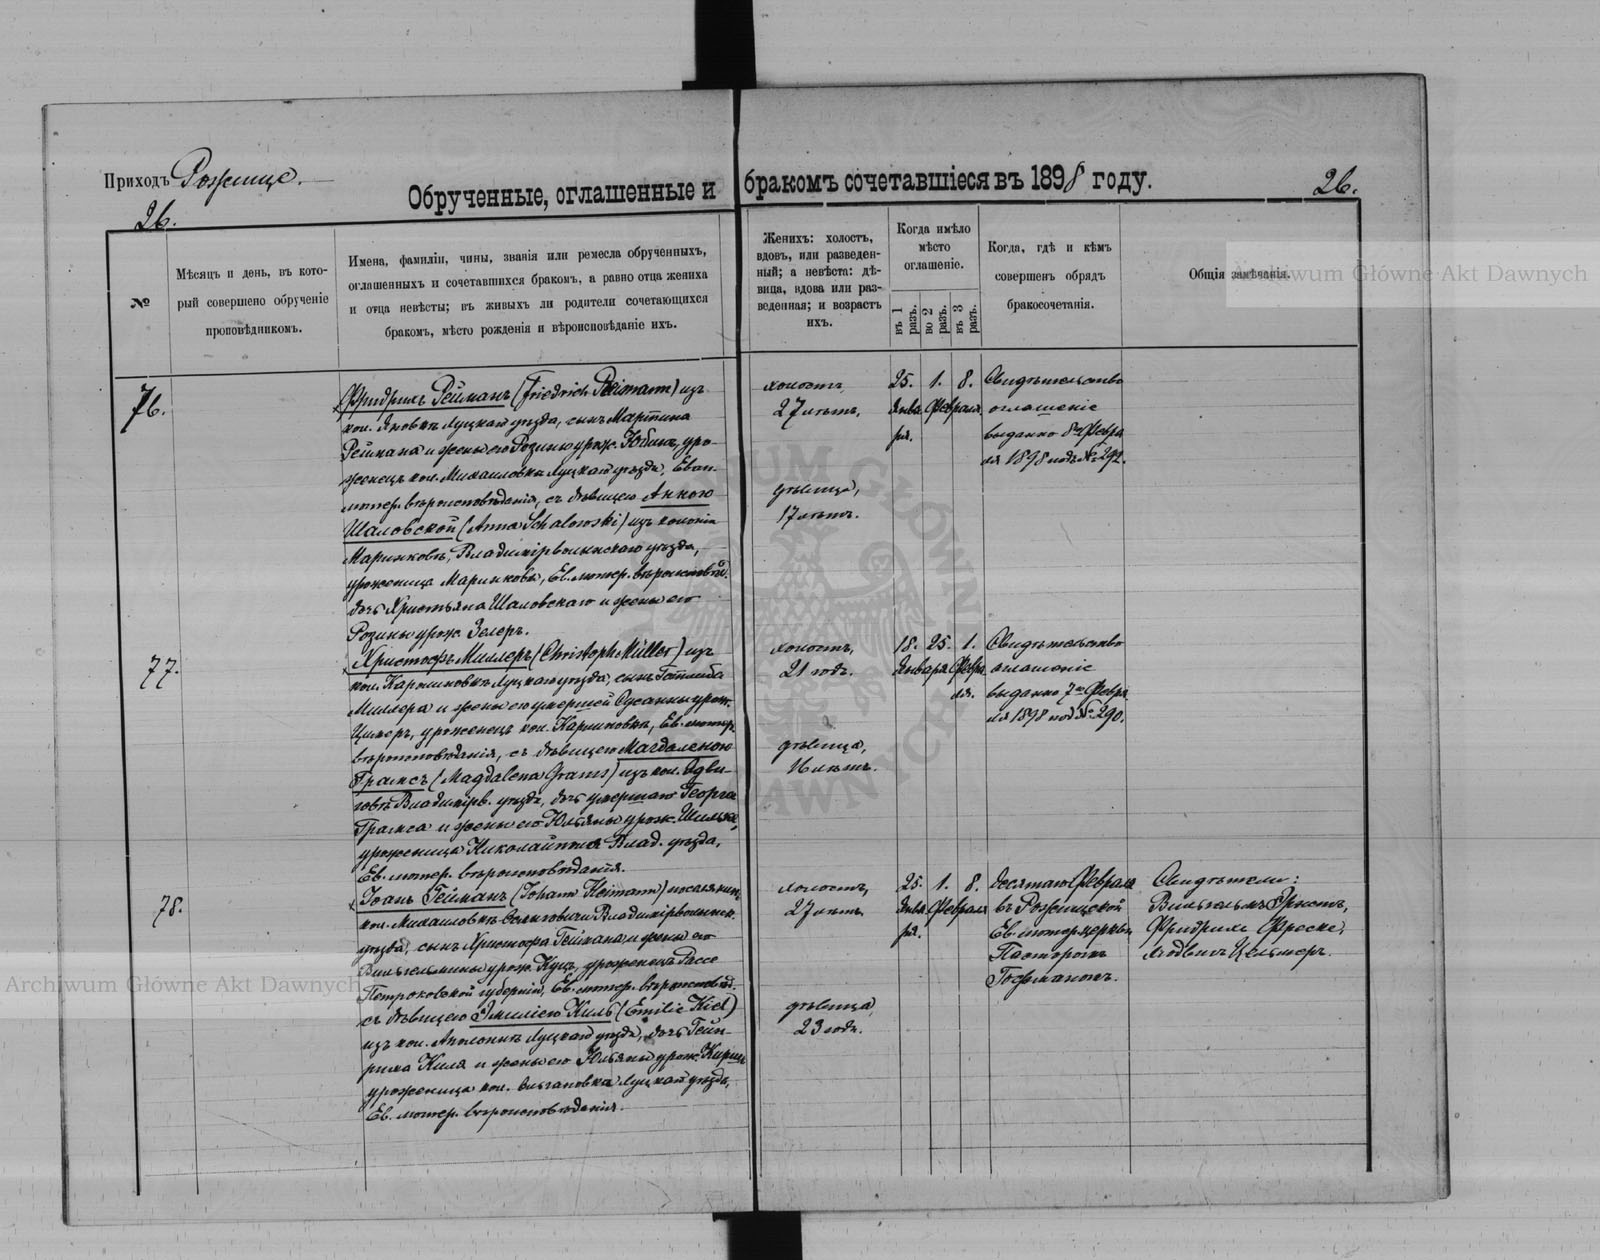 Приходъ Рожище.
Обрученные, оглашенные и бракомъ сочетавшіеся въ 1898 году.
26.
26.
№
Мѣсяцъ и день, въ кото-
рый совершено обрученіе
проповѣдникомъ.
Имена, фамиліи, чины, званія или ремесла обрученныхъ,
оглашенныхъ и сочетавшихся бракомъ, а равно отца жениха
и отца невѣсты; въ живыхъ ли родители сочетающихся
бракомъ, мѣсто рожденія и вѣроисповѣданіе ихъ.
Женихъ: холостъ,
вдовъ, или разведен-
ный; а невѣста: дѣ-
вица, вдова или раз-
веденная; и возрастъ
ихъ.
Когда имѣло
мѣсто
оглашеніе.
въ 1 разъ.
во 2 разъ.
въ 3 разъ.
Когда, гдѣ и кѣмъ
совершенъ обрядъ
бракосочетанія.
Общія замѣчанія.
Archiwum Główne Akt Dawnych
76.
Фридрихъ Рейманъ (Friedrich Reimann) изъ
кол. Яновка Луцкаго уѣзда, сынъ Мартина
Реймана и жены его Розины урож. Юбинъ, уро-
женецъ кол. Михаиловка Луцкаго уѣзда, Еван.
лютер. вѣроисповѣданія, съ дѣвицею Анною
Шаловской (Anna Schalowski) изъ колоніи
Маринковъ, Владимірволынскаго уѣзда,
уроженица Маринкова, Ев. лютер. вѣроисповѣд.
дочь Христьяна Шаловскаго и жены его
Розины урож. Зелеръ.
холостъ,
27 лѣтъ,
дѣвица,
17 лѣтъ.
25. 1. 8.
Янва Февраля
ря.
Свидѣтельство
оглашеніе
выданно 8го Февра
ля 1898 подъ № 292.
77.
Христофъ Миллеръ (Christoph Müller) изъ
кол. Каролиновка Луцкаго уѣзда, сынъ Готлиба
Миллера и жены его умершей Сусанны урож.
Цимеръ, уроженецъ кол. Каролиновка, Ев. лютер.
вѣроисповѣданія, съ дѣвицею Магдаленою
Грамсъ (Magdalena Grams) изъ кол. Ядви-
говка Владимірв. уѣзда, дочь умершаго Георга
Грамса и жены его Юльяны урож. Шильке,
уроженица Николайполя Влад. уѣзда,
Ев. лютер. вѣроисповѣданія.
холостъ,
21 годъ.
дѣвица,
лѣтъ.
18. 25. 1.
Января Февра
ля.
Свидѣтельство
оглашеніе
выданно 7го Февра
ля 1898 подъ № 290.
78.
Іоанъ Гейманъ (Johann Heimann) поселянинъ
кол. Михаиловка Владимірволынск.
уѣзда, сынъ Христофа Геймана и жены его
Вильгельмины урож. Куцъ, уроженецъ Рассе
Петроковской губерніи, Ев. лютер. вѣроисповѣд.
съ дѣвицею Эмиліею Киль (Emilie Kiel)
изъ кол. Аполонка Луцкаго уѣзда, дочь Гейн-
риха Киля и жены его Юльяны урож. Киршъ
уроженица кол. Ольгановка Луцкаго уѣзда,
Ев. лютер. вѣроисповѣданія.
холостъ,
27 лѣтъ.
дѣвица,
23 года.
25. 1. 8.
Янва Февраля
ря.
десятаго Февраля
въ Рожищской
Ев. лютер. церкви
Пасторомъ
Госманомъ.
Свидѣтели:
Вильгельмъ Эрнстъ,
Фридрихъ Фреске,
Людвигъ Цельмеръ.
Archiwum Główne Akt Dawnych
ARCHIWUM GŁÓWNE AKT DAWNYCH